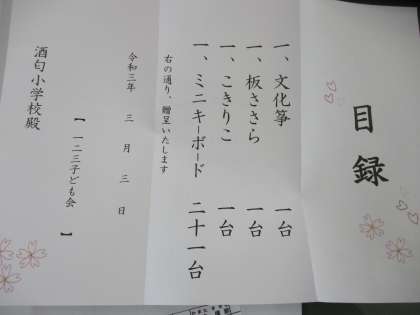 目録
一、文化箏 一台
一、板ささら 一台
一、こきりこ 一台
一、ミニキーボード 二十一台
右の通り、贈呈いたします
令和三年 三月三日
【 一二三子ども会 】
酒匂小学校殿